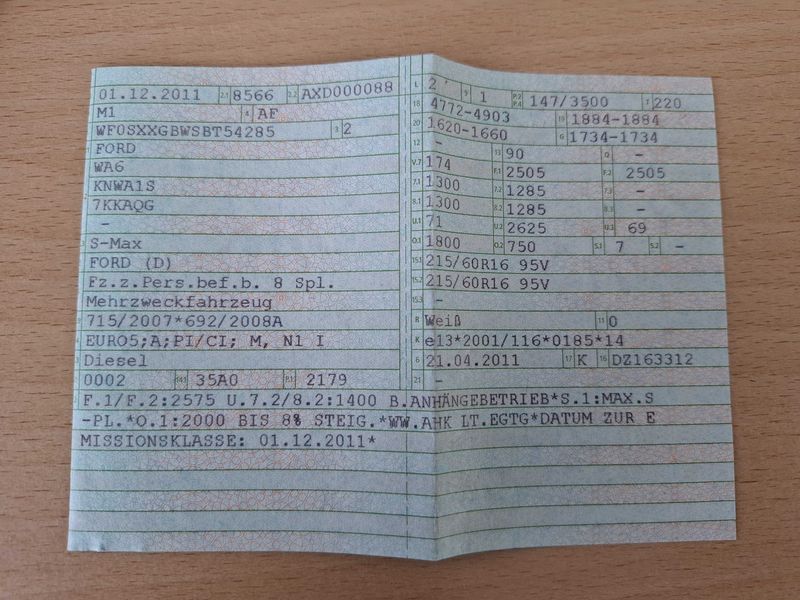 01.12.2011 2.1 8566 2.2 AXD000088
M1 4 AF
WF0SXXGBWSBT54285 3 2
FORD
WA6
KNWA1S
7KKAQG
-
S-Max
FORD (D)
Fz.z.Pers.bef.b. 8 Spl.
Mehrzweckfahrzeug
715/2007*692/2008A
EURO5;A;PI/CI; M, N1 I
Diesel
0002 14.1 35A0 P.1 2179
L 2 9 1 P.2 P.4 147/3500 T 220
18 4772-4903 19 1884-1884
20 1620-1660 G 1734-1734
12 - 13 90 Q -
V.7 174 F.1 2505 F.2 2505
7.1 1300 7.2 1285 7.3 -
8.1 1300 8.2 1285 8.3 -
U.1 71 U.2 2625 U.3 69
O.1 1800 O.2 750 S.1 7 S.2 -
15.1 215/60R16 95V
15.2 215/60R16 95V
15.3 -
R Weiß 11 0
K e13*2001/116*0185*14
6 21.04.2011 17 K 16 DZ163312
21 -
F.1/F.2:2575 U.7.2/8.2:1400 B.ANHÄNGEBETRIEB*S.1:MAX.S
-PL.*O.1:2000 BIS 8% STEIG.*WW.AHK LT.EGTG*DATUM ZUR E
MISSIONSKLASSE: 01.12.2011*